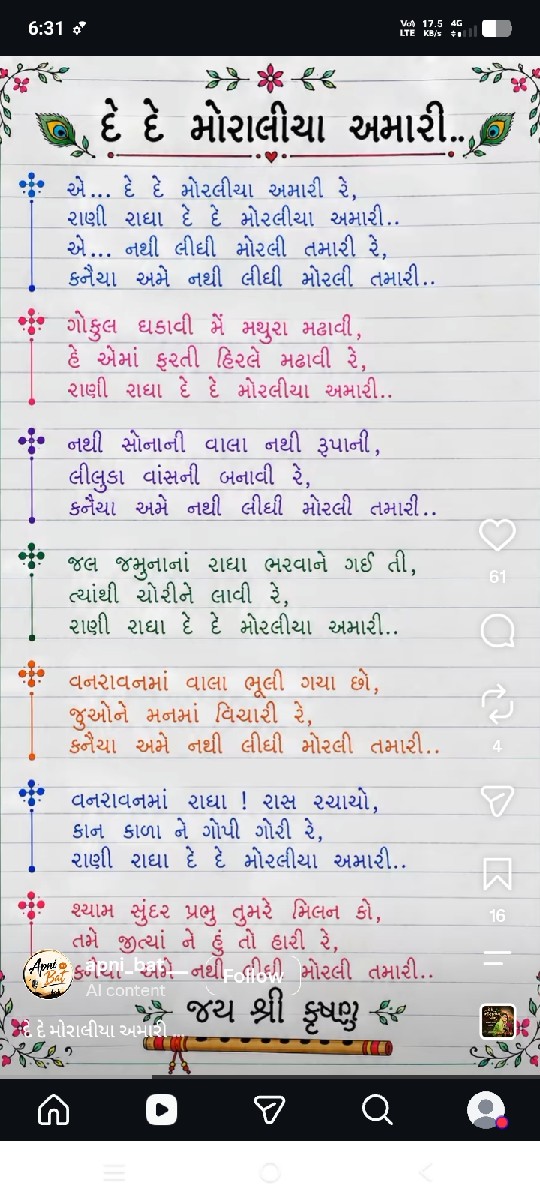 6:31
Vo) LTE 17.5 KB/s 4G
દે દે મોરાલીયા અમારી..
એ... દે દે મોરલીયા અમારી રે,
રાણી રાધા દે દે મોરલીયા અમારી..
એ... નથી લીધી મોરલી તમારી રે,
કનૈયા અમે નથી લીધી મોરલી તમારી..
ગોકુલ ઘકાવી મેં મથુરા મઢાવી,
હે એમાં ફરતી હિરલે મઢાવી રે,
રાણી રાધા દે દે મોરલીયા અમારી..
નથી સોનાની વાલા નથી રૂપાની,
લીલુડા વાંસની બનાવી રે,
કનૈયા અમે નથી લીધી મોરલી તમારી..
જલ જમુનાનાં રાધા ભરવાને ગઈ તી,
ત્યાંથી ચોરીને લાવી રે,
રાણી રાધા દે દે મોરલીયા અમારી..
વનરાવનમાં વાલા ભૂલી ગયા છો,
જુઓને મનમાં વિચારી રે,
કનૈયા અમે નથી લીધી મોરલી તમારી..
વનરાવનમાં રાધા ! રાસ રચાયો,
કાન કાળા ને ગોપી ગોરી રે,
રાણી રાધા દે દે મોરલીયા અમારી..
શ્યામ સુંદર પ્રભુ તુમરે મિલન કો,
તમે જીત્યાં ને હું તો હારી રે,
કનૈયા અમે નથી લીધી મોરલી તમારી..
જય શ્રી કૃષ્ણ
61
4
16
Apni Bat
apni_bat__
Follow
AI content
દે દે મોરાલીયા અમારી ...